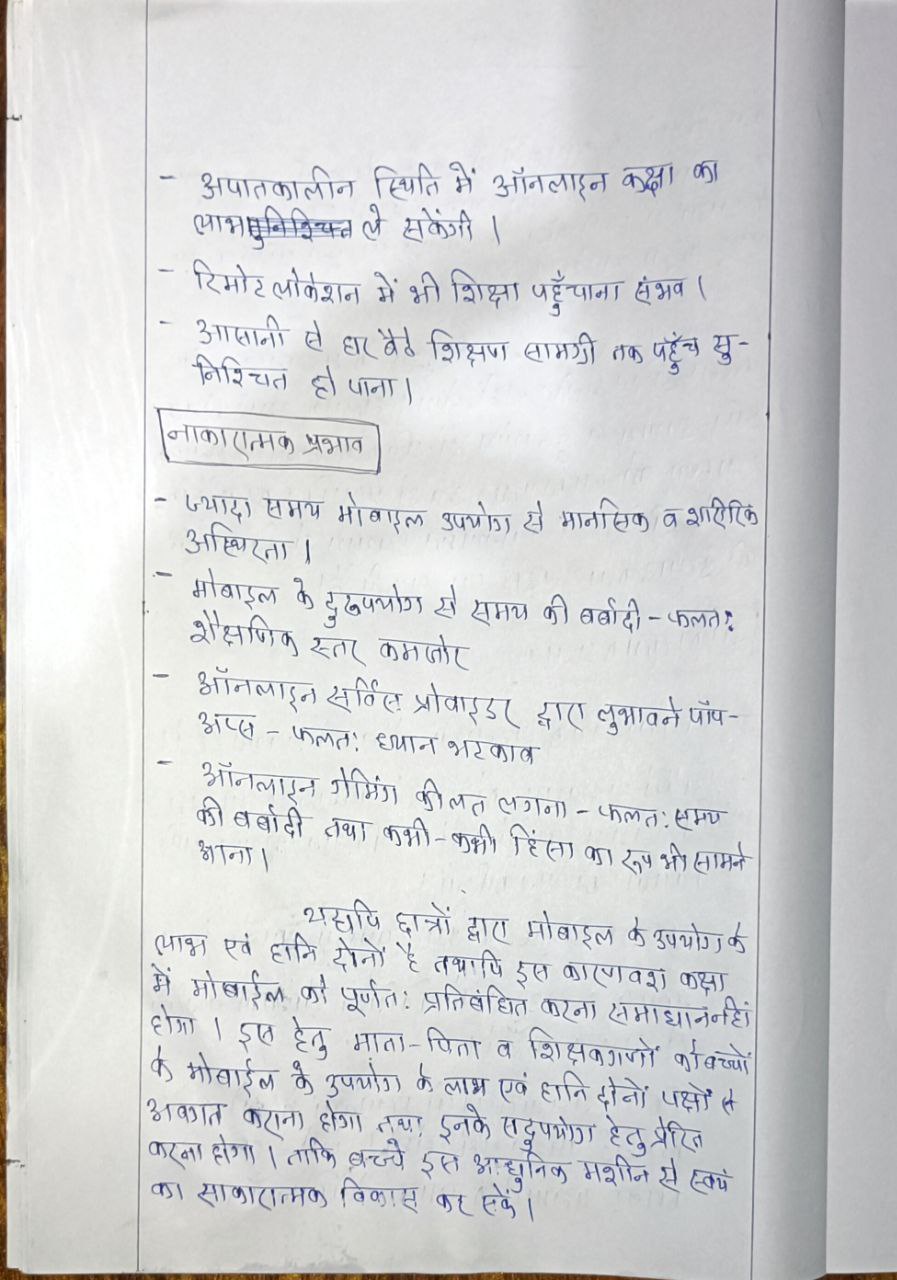 - अपातकालीन स्थिति में ऑनलाइन कक्षा का
लाभ सुनिश्चित ले सकेंगी ।
- रिमोट लोकेशन में भी शिक्षा पहुँचाना संभव ।
- आसानी से घर बैठे शिक्षण सामग्री तक पहुँच सु-
निश्चित हो पाना ।
नाकारात्मक प्रभाव
- ज्यादा समय मोबाइल उपयोग से मानसिक व शारीरिक
अस्थिरता ।
- मोबाइल के दुरुपयोग से समय की बर्बादी - फलतः
शैक्षणिक स्तर कमजोर
- ऑनलाइन सर्विस प्रोवाइडर द्वारा लुभावने पॉप-
अप्स - फलतः ध्यान भटकाव
- ऑनलाइन गेमिंग की लत लगना - फलतः समय
की बर्बादी तथा कभी-कभी हिंसा का रूप भी सामने
आना ।
यद्यपि छात्रों द्वारा मोबाइल के उपयोग के
लाभ एवं हानि दोनों है तथापि इस कारणवश कक्षा
में मोबाईल को पूर्णतः प्रतिबंधित करना समाधान नहीं
होगा । इस हेतु माता-पिता व शिक्षकगणों को बच्चों
के मोबाईल के उपयोग के लाभ एवं हानि दोनों पक्षों से
अवगत कराना होगा तथा इनके सदुपयोग हेतु प्रेरित
करना होगा । ताकि बच्चे इस आधुनिक मशीन से स्वयं
का साकारात्मक विकास कर सकें ।